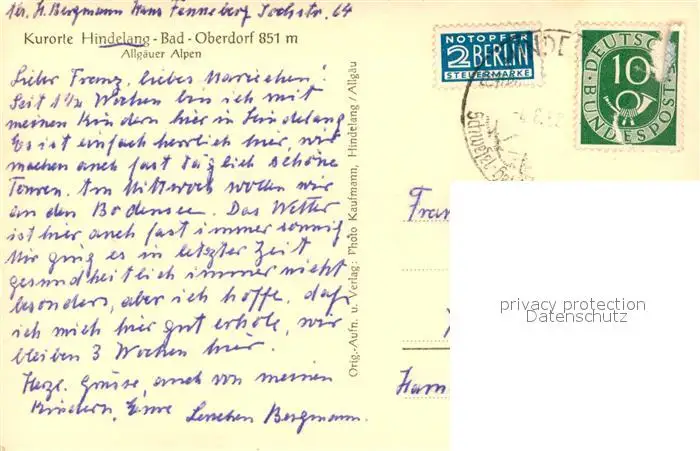 H. Bergmann Haus Fenneberg Jochstr. 64
Kurorte Hindelang-Bad-Oberdorf 851 m
Allgäuer Alpen
Lieber Franz, liebes Mariechen!
Seit 1½ Wochen bin ich mit
meinen Kindern hier in Hindelang
Es ist einfach herrlich hier, wir
machen auch fast täglich schöne
Touren. Am Mittwoch wollen wir
an den Bodensee. Das Wetter
ist hier auch fast immer sonnig
Mir ging es in letzter Zeit
gesundheitlich immer nicht
besonders, aber ich hoffe, daß
ich mich hier gut erhole, wir
bleiben 3 Wochen hier.
Herzl. Grüsse, auch von meinen
Kindern, Eure
Lenchen Bergmann.
Orig.-Aufn. u. Verlag: Photo Kaufmann, Hindelang/Allgäu
NOTOPFER
2 BERLIN
STEUERMARKE
DEUTSCHE
BUNDESPOST
10
Fran
Ham
privacy protection
Datenschutz